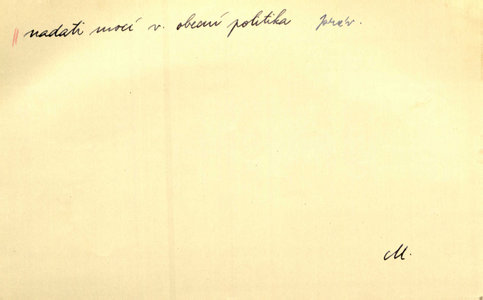 ‖ nadati moci v. obecní politika práv.
M.